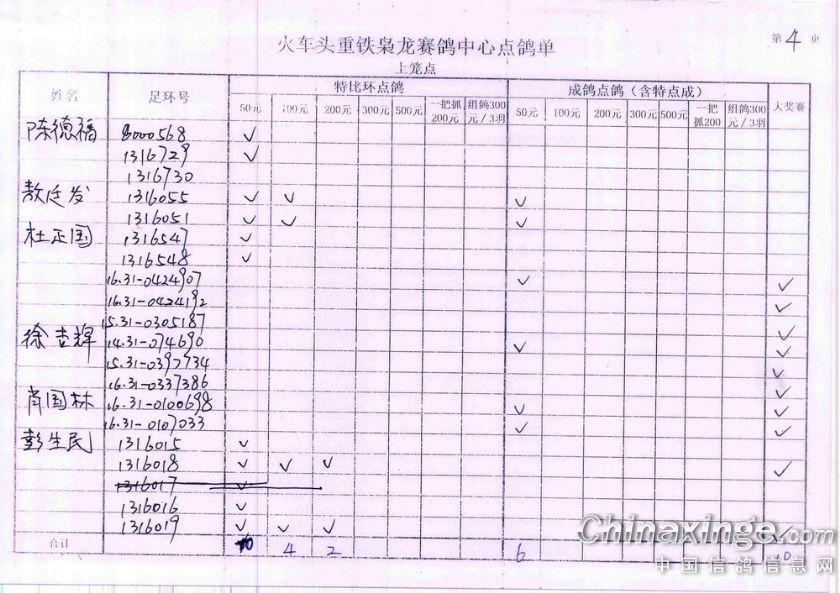 第 4 页
火车头重铁枭龙赛鸽中心点鸽单
上笼点
姓名 足环号 特比环点鸽 成鸽点鸽（含特点成） 大奖赛
50元 100元 200元 300元 500元 一把抓200元 组鸽300元/3羽 50元 100元 200元 300元 500元 一把抓200 组鸽300元/3羽
陈德福 8000568 ✓
1316729 ✓
1316730
敖廷发 1316055 ✓ ✓ ✓
1316051 ✓ ✓ ✓
杜正国 1316547 ✓
1316548 ✓
16.31-0424907 ✓ ✓
16.31-0424192 ✓
15.31-0305187 ✓
徐吉辉 14.31-074690 ✓ ✓
15.31-0397734 ✓
16.31-0337386 ✓
肖国林 16.31-0100698 ✓ ✓
16.31-0107033 ✓ ✓
彭生民 1316015 ✓
1316018 ✓ ✓ ✓ ✓
1316017 ✓
1316016 ✓
1316019 ✓ ✓ ✓ ✓
合计 10 4 2 6 10
Chinaxinge.com
中国信鸽信息网